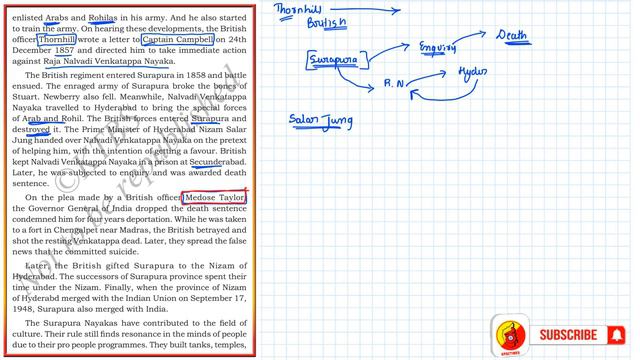 enlisted Arabs and Rohilas in his army. And he also started
to train the army. On hearing these developments, the British
officer Thornhill wrote a letter to Captain Campbell on 24th
December 1857 and directed him to take immediate action
against Raja Nalvadi Venkatappa Nayaka.
The British regiment entered Surapura in 1858 and battle
ensued. The enraged army of Surapura broke the arms of
Stuart. Newberry also fell. Meanwhile, Nalvadi Venkatappa
Nayaka travelled to Hyderabad to bring the special forces of
Arab and Rohil. The British forces entered Surapura and
destroyed it. The Prime Minister of Hyderabad Nizam Salar
Jung handed over Nalvadi Venkatappa Nayaka on the pretext
of helping him, with the intention of getting a favour. British
kept Nalvadi Venkatappa Nayaka in a prison at Secunderabad.
Later, he was subjected to enquiry and was awarded death
sentence.
On the plea made by a British officer Medose Taylor,
the Governor General of India dropped the death sentence
condemned him for four years deportation. While he was taken
to a fort in Chengalpet near Madras, the British betrayed and
shot the resting Venkatappa dead. Later, they spread the false
news that he committed suicide.
Later the British gifted Surapura to the Nizam of
Hyderabad. The successors of Surapura province spent their
time under the Nizam. Finally, when the province of Nizam
of Hyderabd merged with the Indian Union on September 17,
1948, Surapura also merged with India.
The Surapura Nayakas have contributed to the field of
culture. Their rule still finds resonance in the minds of people
due to their pro people programmes. They built tanks, temples,
©KTBS
Not to be republished
Thornhill
British
Death
Enquiry
[Surapura]
R.N
Hyder
Salar Jung
SUBSCRIBE